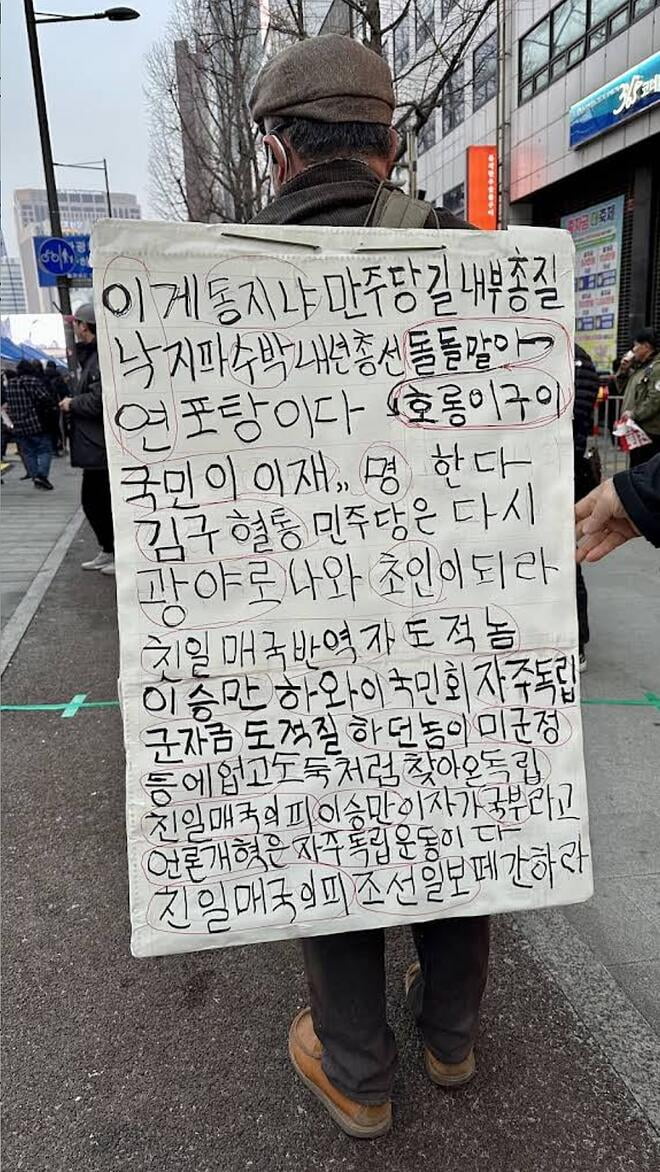 이게 동지냐 만주당길 내부총질
낙지파 수박 내년총선 돌돌말아
연포탕이다 호롱이구이
국민이 이재,, 명 한다
김구 혈통 민주당은 다시
광야로 나와 초인이되라
친일매국반역자 도적놈
이승만 하와이국민회 자주독립
군자금 도적질 하던놈이 미군정
등에업고 도둑처럼 찾아온독립
친일매국의피 이승만이자가 국부라고
언론개혁은 자주독립운동이다
친일매국의피 조선일보 폐간하라
365코